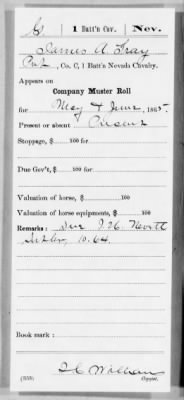 G. | 1 Batt'n Cav. | Nev.
James A. Gray
Pvt, Co. C, 1 Batt'n Nevada Cavalry.
Appears on
Company Muster Roll
for May & June, 1865.
Present or absent Present
Stoppage, $ 100 for
Due Gov't, $ 100 for
Valuation of horse, $ 100
Valuation of horse equipments, $ 100
Remarks: Due J. H. Nevett
Sutler, 10.64.
Book mark:
(358)
Copyist.